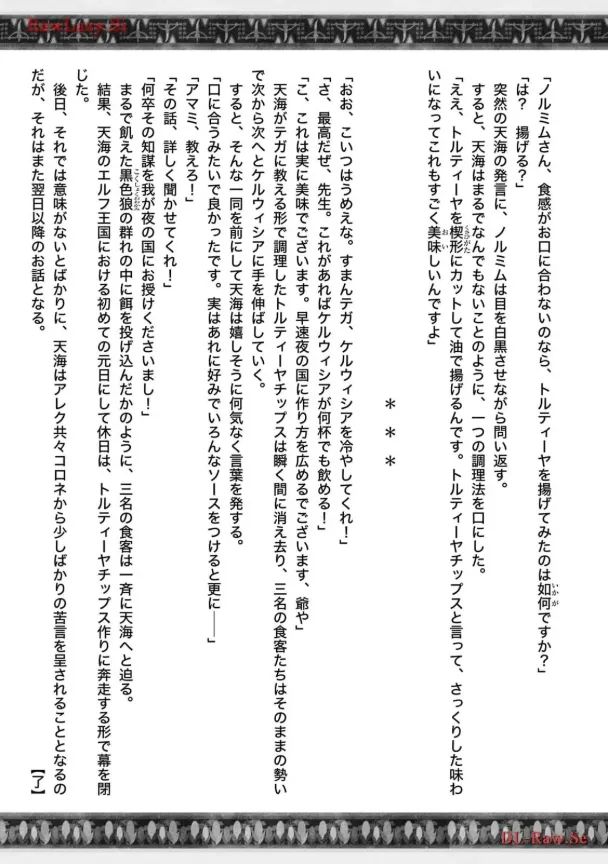 RawLazy.Si
「ノルミムさん、食感がお口に合わないのなら、トルティーヤを揚げてみたのは如何ですか？」
いかが
「は？　揚げる？」
突然の天海の発言に、ノルミムは目を白黒させながら問い返す。
すると、天海はまるでなんでもないことのように、一つの調理法を口にした。
「ええ、トルティーヤを楔形にカットして油で揚げるんです。トルティーヤチップスと言って、さっくりした味わ
くさびがた
いになってこれもすごく美味しいんですよ」
おい
＊＊＊
「おお、こいつはうめえな。すまんテガ、ケルウィシアを冷やしてくれ！」
「さ、最高だぜ、先生。これがあればケルウィシアが何杯でも飲める！」
「こ、これは実に美味でございます。早速夜の国に作り方を広めるでございます、爺や」
天海がテガに教える形で調理したトルティーヤチップスは瞬く間に消え去り、三名の食客たちはそのままの勢い
で次から次へとケルウィシアに手を伸ばしていく。
すると、そんな一同を前にして天海は嬉しそうに何気なく言葉を発する。
「口に合うみたいで良かったです。実はあれに好みでいろんなソースをつけると更に――」
「アマミ、教えろ！」
「その話、詳しく聞かせてくれ！」
「何卒その知謀を我が夜の国にお授けくださいまし！」
まるで飢えた黒色狼の群れの中に餌を投げ込んだかのように、三名の食客は一斉に天海へと迫る。
こくしょくおおかみ
結果、天海のエルフ王国における初めての元日にして休日は、トルティーヤチップス作りに奔走する形で幕を閉
じた。
後日、それでは意味がないとばかりに、天海はアレク共々コロネから少しばかりの苦言を呈されることとなるの
だが、それはまた翌日以降のお話となる。
【了】
DL-Raw.Se